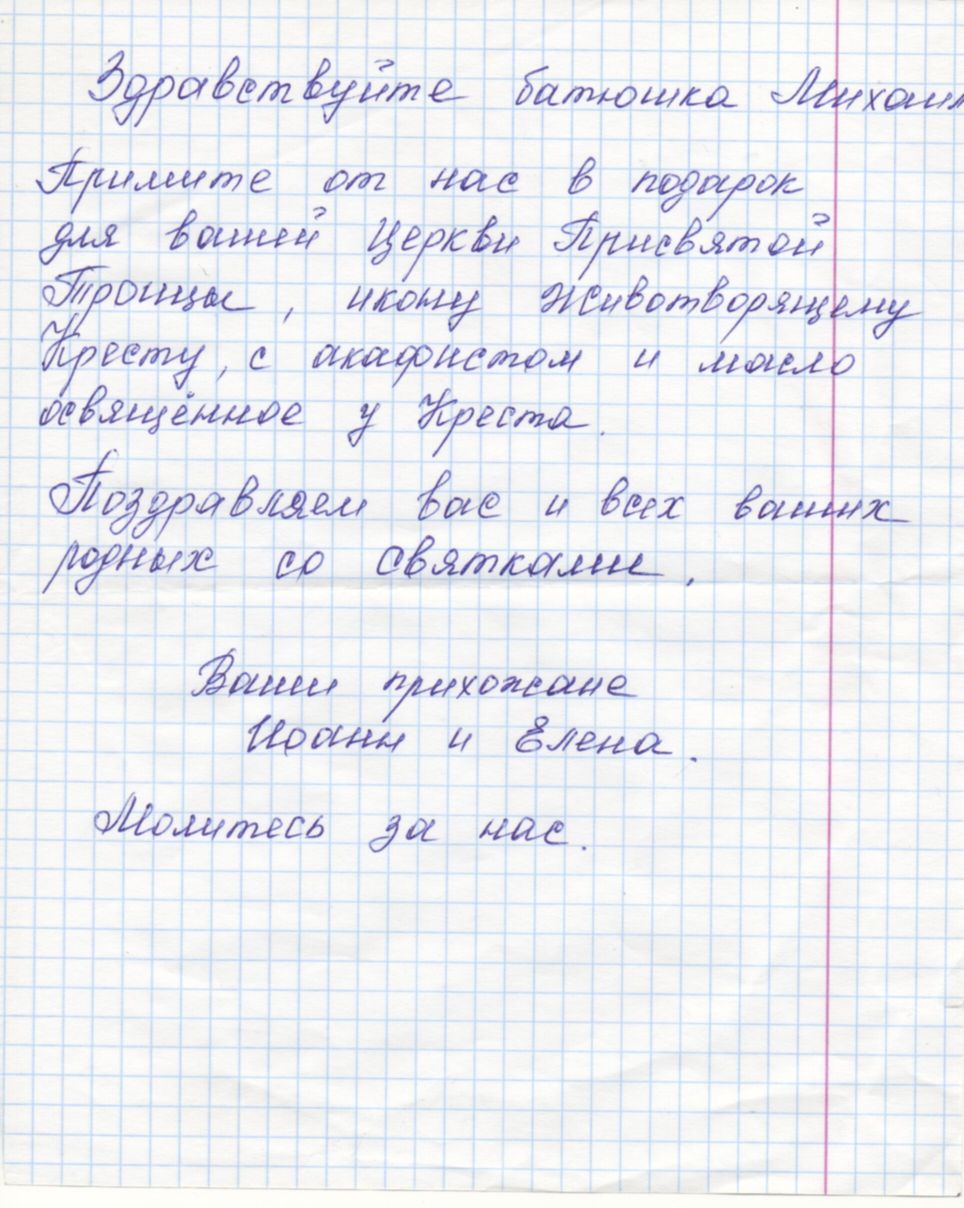 Здравствуйте батюшка Михаил
Примите от нас в подарок
для вашей Церкви Присвятой
Троицы, икону Животворящему
Кресту, с акафистом и масло
освящённое у Креста.
Поздравляем вас и всех ваших
родных со святками.
Ваши прихожане
Иоанн и Елена.
Молитесь за нас.